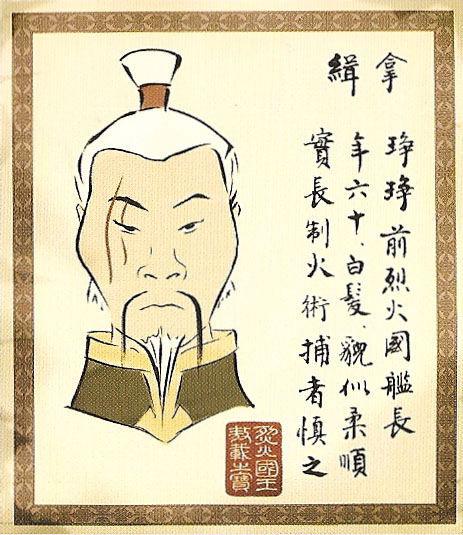 緝拿
琤琤前烈火國艦長
年六十、白髮、貌似柔順
實長制火術捕者慎之
烈火國王
之寶